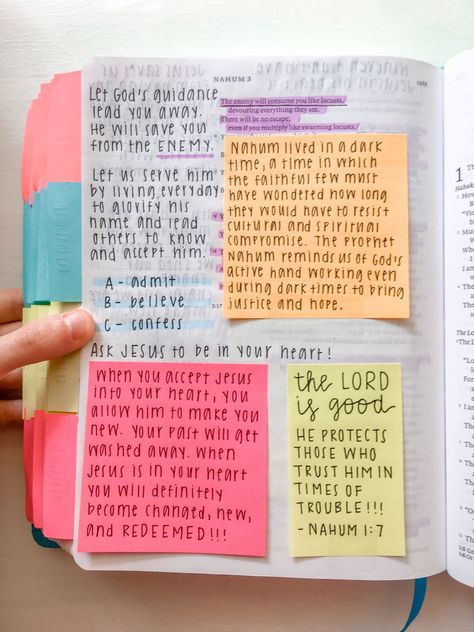 NAHUM 3
1066
Let God's guidance
lead you away.
He will save you
from the ENEMY.
Let us serve him
by living everyday
to glorify his
name and lead
others to know
and accept him.
A - admit
B - believe
C - confess
Ask Jesus to be in your heart!
The enemy will consume you like locusts,
devouring everything they see.
There will be no escape,
even if you multiply like swarming locusts.
Nahum lived in a dark
time, a time in which
the faithful few must
have wondered how long
they would have to resist
cultural and spiritual
compromise. The prophet
Nahum reminds us of God's
active hand working even
during dark times to bring
justice and hope.
When you accept Jesus
into your heart, you
allow him to make you
new. Your past will get
washed away. When
Jesus is in your heart
you will definitely
become changed, new,
and REDEEMED!!!
the LORD
is good
HE PROTECTS
THOSE WHO
TRUST HIM IN
TIMES OF
TROUBLE!!!
- NAHUM 1:7